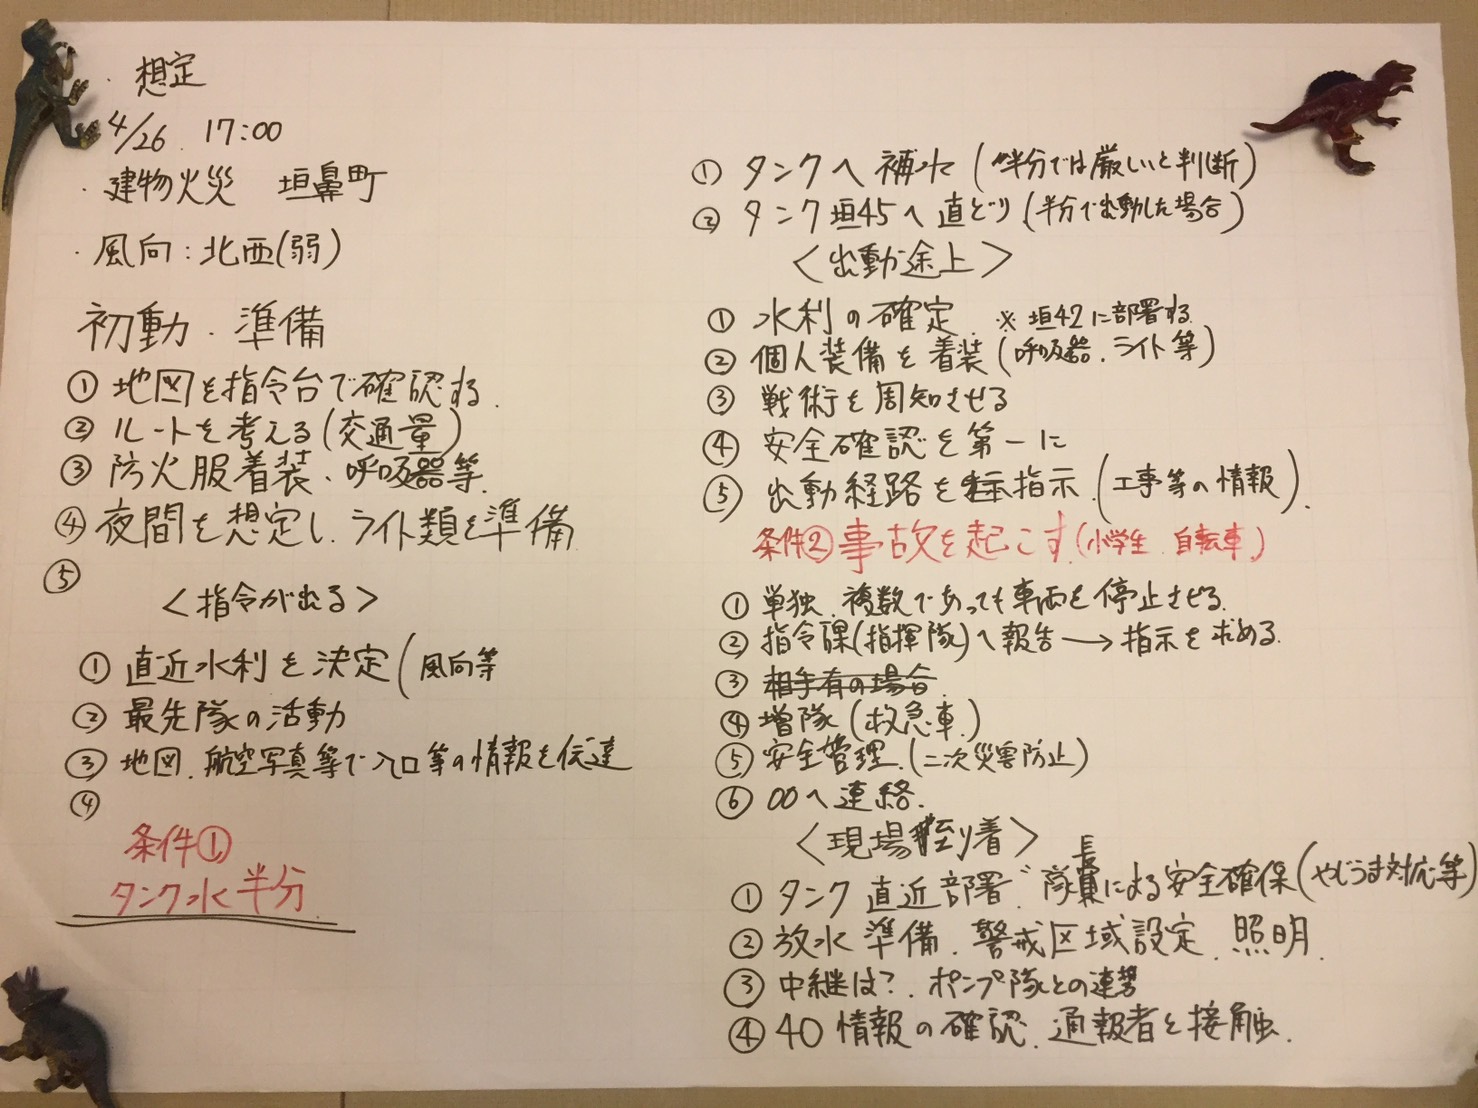 ・想定
4/26. 17:00
・建物火災 垣鼻町
・風向:北西(弱)
初動・準備
①地図を指令台で確認する.
②ルートを考える(交通量)
③防火服着装、呼吸器等.
④夜間を想定し、ライト類を準備
⑤
<指令が出る>
①直近水利を決定(風向等
②最先隊の活動
③地図.航空写真等で入口等の情報を伝達
④
条件①
タンク水半分.
①タンクへ補水(半分では厳しいと判断)
②タンク垣45へ直どり(半分で出動した場合)
<出動途上>
①水利の確定. ※垣42に部署する.
②個人装備を着装(呼吸器.ライト等)
③戦術を周知させる
④安全確認を第一に
⑤出動経路を指示.(工事等の情報).
条件②事故を起こす.(小学生.自転車.)
①単独.複数であっても車両を停止させる.
②指令課(指揮隊)へ報告→指示を求める.
③相手有の場合.
④増隊(救急車.)
⑤安全管理.(二次災害防止)
⑥〇〇へ連絡.
<現場到着>
①タンク直近部署〃隊長による安全確保(やじうま対応等)
②放水準備.警戒区域設定.照明.
③中継は?.ポンプ隊との連携
④40情報の確認.通報者と接触.